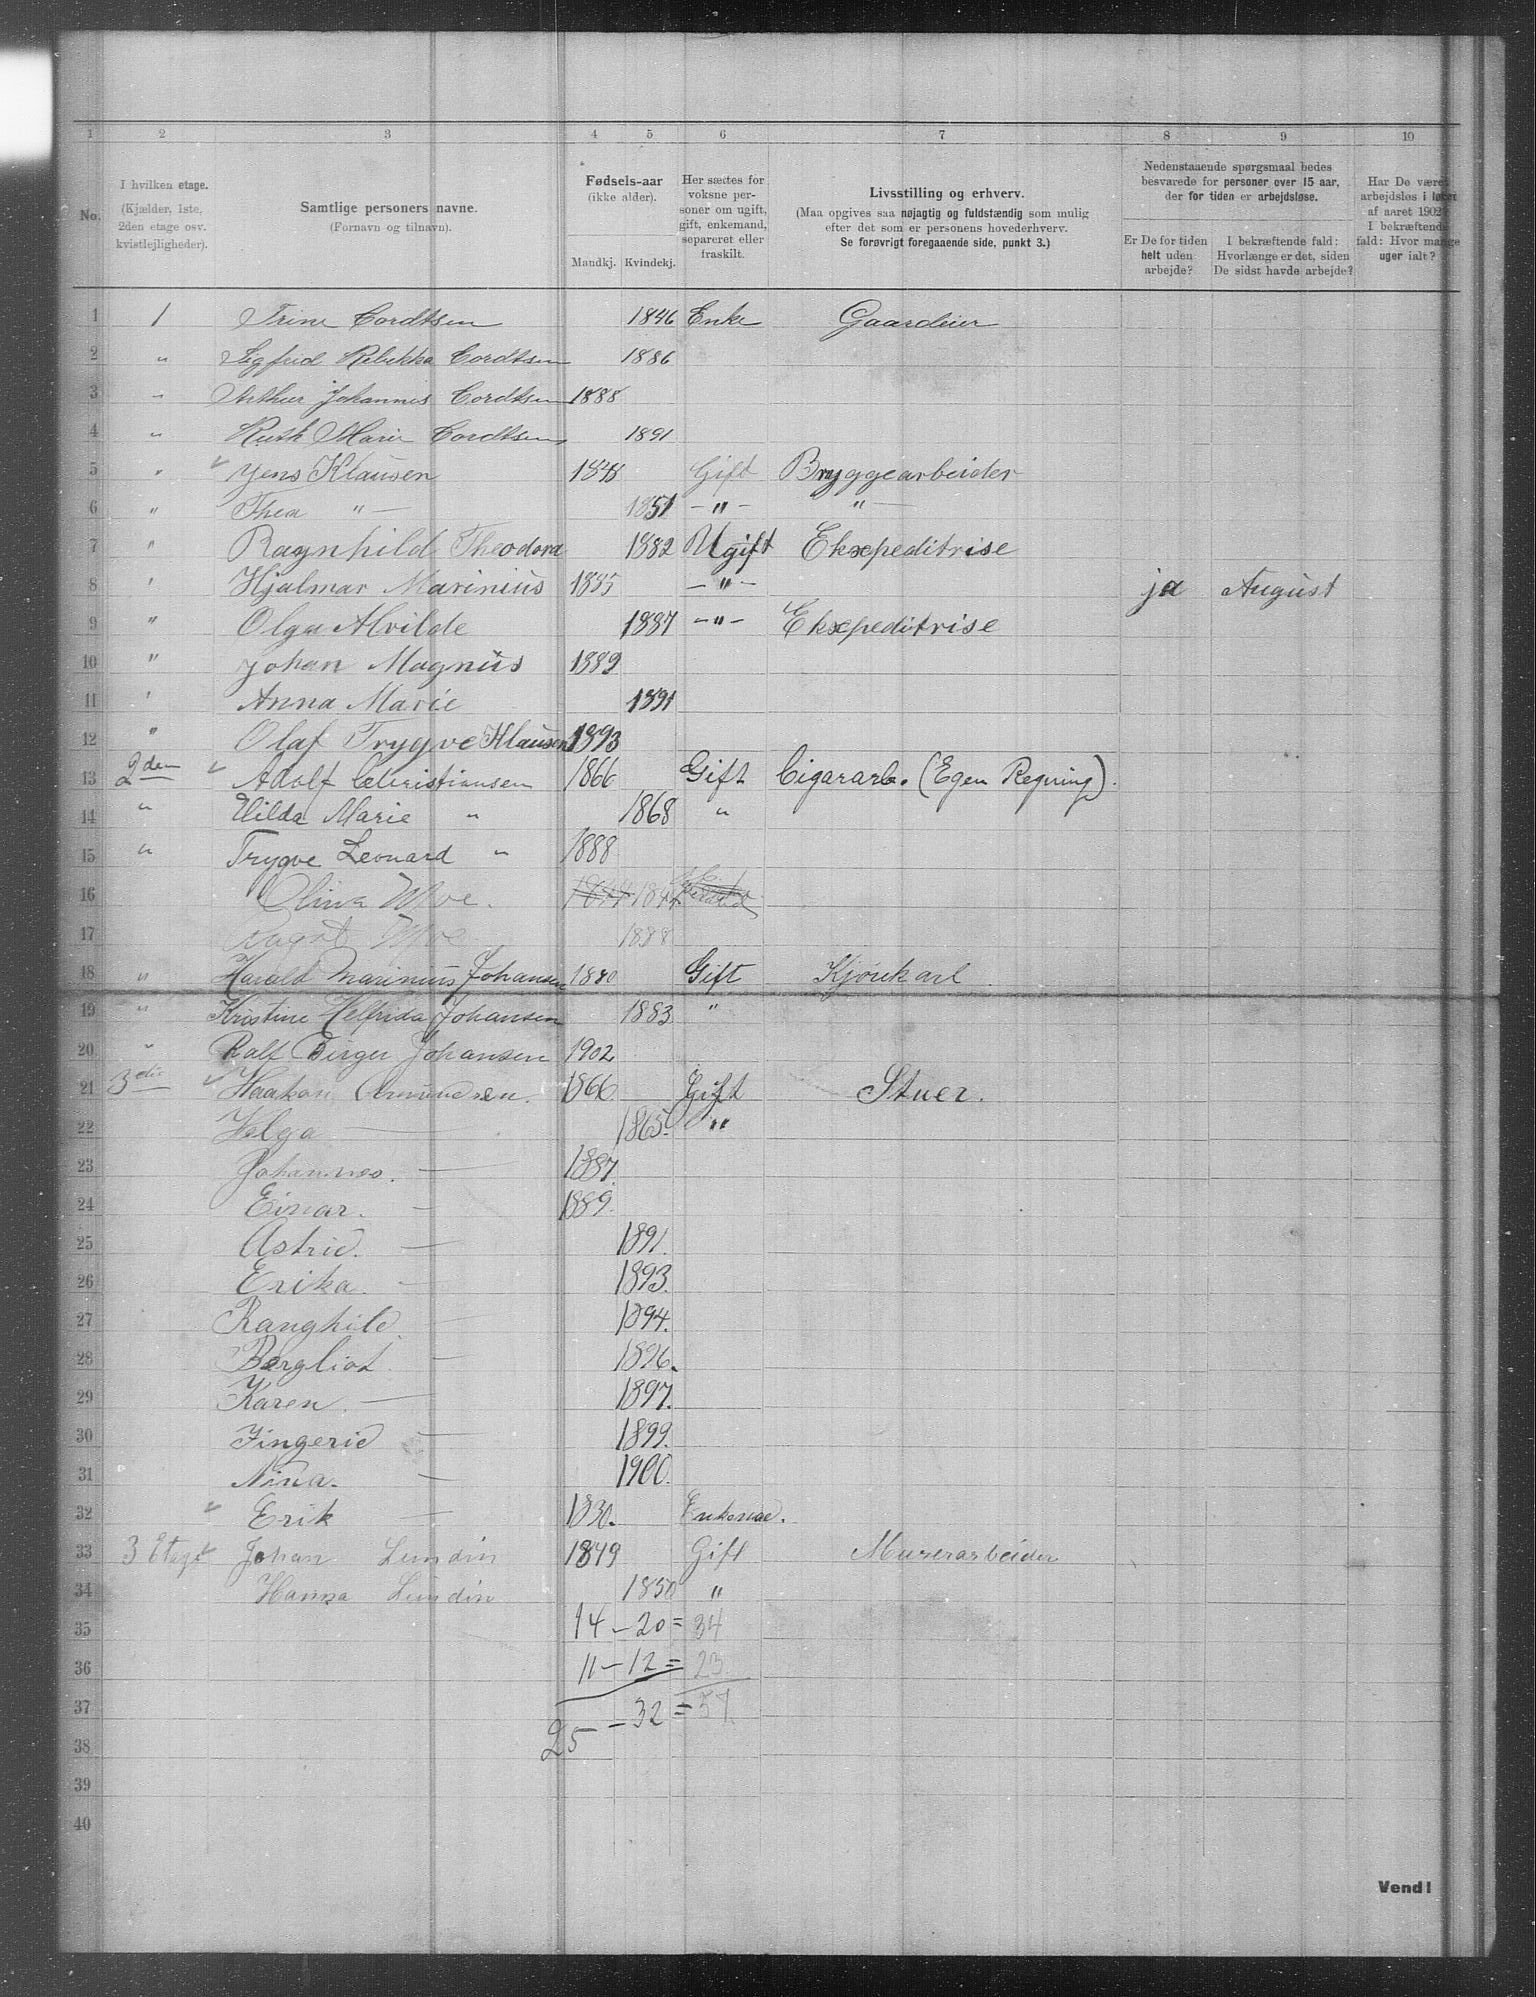 1 2 3 4 5 6 7 8 9 10
No.
I hvilken etage.
(Kjælder, 1ste,
2den etage osv.
kvistlejligheder).
Samtlige personers navne.
(Fornavn og tilnavn).
Fødsels-aar
(ikke alder).
Mandkj. Kvindekj.
Her sættes for
voksne per-
soner om ugift,
gift, enkemand,
separeret eller
fraskilt.
Livsstilling og erhverv.
(Maa opgives saa nøjagtig og fuldstændig som mulig
efter det som er personens hovederhverv.
Se forøvrigt foregaaende side, punkt 3.)
Nedenstaaende spørgsmaal bedes
besvarede for personer over 15 aar,
der for tiden er arbejdsløse.
Er De for tiden
helt uden
arbejde?
I bekræftende fald:
Hvorlænge er det, siden
De sidst havde arbejde?
Har De været
arbejdsløs i løbet
af aaret 1902
I bekræftende
fald: Hvor mange
uger ialt?
1 1 Trine Cordtsen 1846 Enke Gaardeier
2 " Sigfrid Rebekka Cordtsen 1886
3 " Arthur Johannes Cordtsen 1888
4 " Ruth Marie Cordtsen 1891
5 " Jens Klausen 1848 Gift Bryggearbeider
6 " Thea " — 1851 — " — " —
7 " Ragnhild Theodora 1882 Ugift Ekspeditrise
8 " Hjalmar Marinius 1885 — " — ja August
9 " Olga Alvilde 1887 — " — Ekspeditrise
10 " Johan Magnus 1889
11 " Anna Marie 1891
12 " Olaf Trygve Klausen 1893
13 2den Adolf Christiansen 1866 Gift Cigararb. (Egen Regning).
14 " Hilda Marie " 1868 "
15 " Trygve Leonard " 1888
16 Olina Moe.
17 Moe 1888
18 " Harald Marinius Johansen 1880 Gift Kjørekarl
19 " Kristine Helfrida Johansen 1883 "
20 " Rolf Birger Johansen 1902
21 3die Haakon Amundsen. 1866 Gift Stuer.
22 Helga — 1865. "
23 Johannes. — 1887.
24 Einar. — 1889.
25 Astrid. — 1891.
26 Erika. — 1893.
27 Ranghild. — 1894.
28 Bergliot — 1896.
29 Karen. — 1897.
30 Jingerid — 1899.
31 Nina. — 1900.
32 Erik — 1830. Enkemd.
33 3 Etage Johan Lundin 1849 Gift Murerarbeider
34 Hanna Lundin 1850 "
35 14 — 20 = 34
36 11 — 12 = 23
37 25 — 32 = 57
38
39
40
Vend!